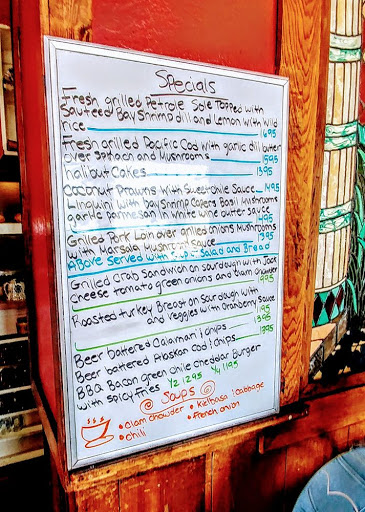 Specials
Fresh grilled Petrole Sole Topped with
Sauteed Bay Shrimp dill and Lemon with wild
rice 1695
Fresh grilled Pacific Cod with garlic dill butter
over Spinach and Mushrooms 1595
halibut Cakes 1395
Coconut Prawns with Sweet Chile Sauce 1495
Linguini with bay Shrimp Capers Basil Mushrooms
garlic parmesan in white wine butter Sauce 1495
Grilled Pork Loin over grilled onions Mushrooms
with Marsala Mushroom Sauce 1395
Above Served with Soup or Salad and Bread
Grilled Crab Sandwich on Sourdough with Jack
Cheese tomato green onions and Clam Chowder
995
Roasted turkey Breast on Sourdough with
and Veggies with Cranberry Sauce
1195
Beer battered Calamari & Chips 1395
Beer battered Alaskan Cod & Chips 1395
BBQ Bacon green chile cheddar Burger
with Spicy fries 1/2 1295 1/4 1195
Soups
• Clam Chowder • Kielbasa & Cabbage
• Chili • French onion